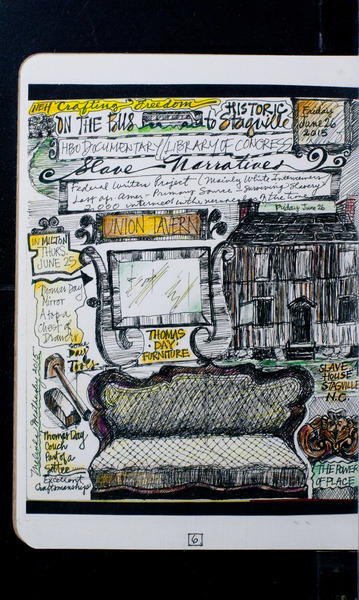 NEH Crafting Freedom
ON THE BUS
to
HISTORIC
Stagville
Friday
June 26
2015
HBO DOCUMENTARY/LIBRARY OF CONGRESS
Slave Narratives
Federal Writers Project (Mainly White Interviewers
Last of Primary Source: Surviving Slavery
2,000 interviews
UNION TAVERN
Friday June 26
IN MILTON
THURS.
JUNE 25
Thomas Day
Mirror
Atop a
Chest of
Drawers
THOMAS
DAY
FURNITURE
Some
Day
Tools
SLAVE
HOUSE
STAGVILLE
N.C.
Thomas Day
Couch
Part of a
Settee
Excellent
Craftsmanship
THE POWER
OF PLACE
6